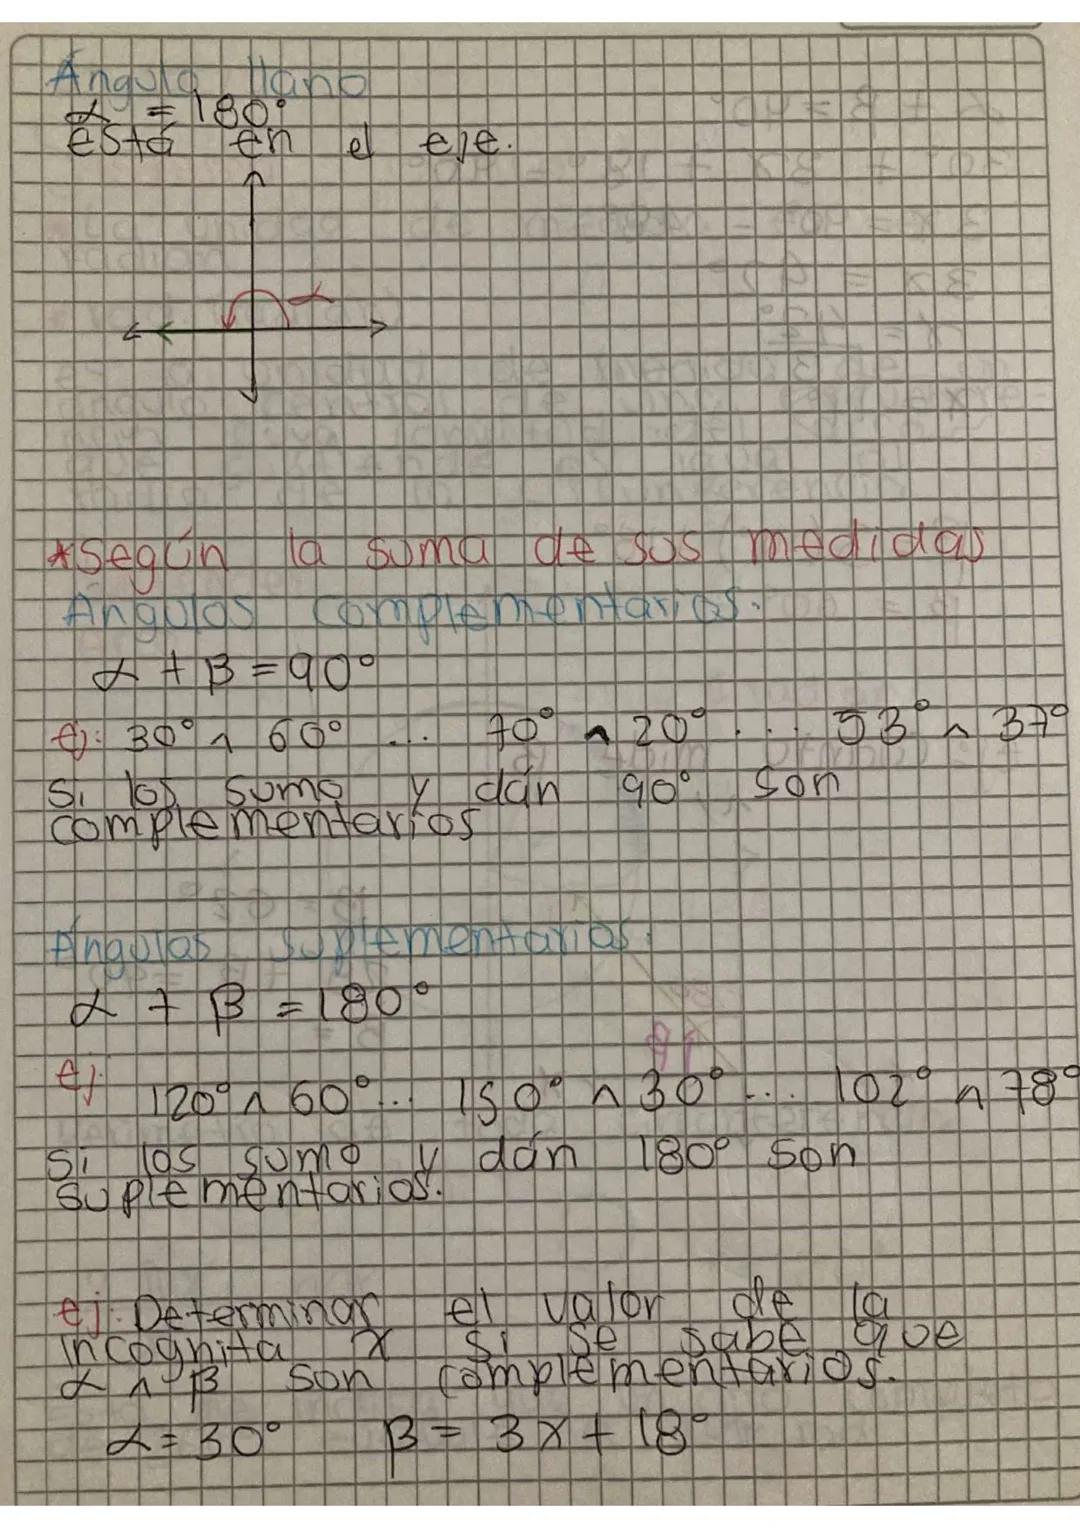 Ángulo llano
α = 180°
está en el eje.
α
*Según la suma de sus medidas
Ángulos complementarios.
α + β = 90°
ej: 30° ∧ 60° ... 70° ∧ 20° ... 53° ∧ 37°
Si los sumo y dán 90° son
complementarios
Ángulos suplementarios.
α + β = 180°
ej:
120° ∧ 60° ... 150° ∧ 30° ... 102° ∧ 78°
Si los sumo y dán 180° son
suplementarios.
ej: Determinar el valor de la
incognita x si se sabe que
α ∧ β son complementarios.
α = 30° β = 3x + 18°